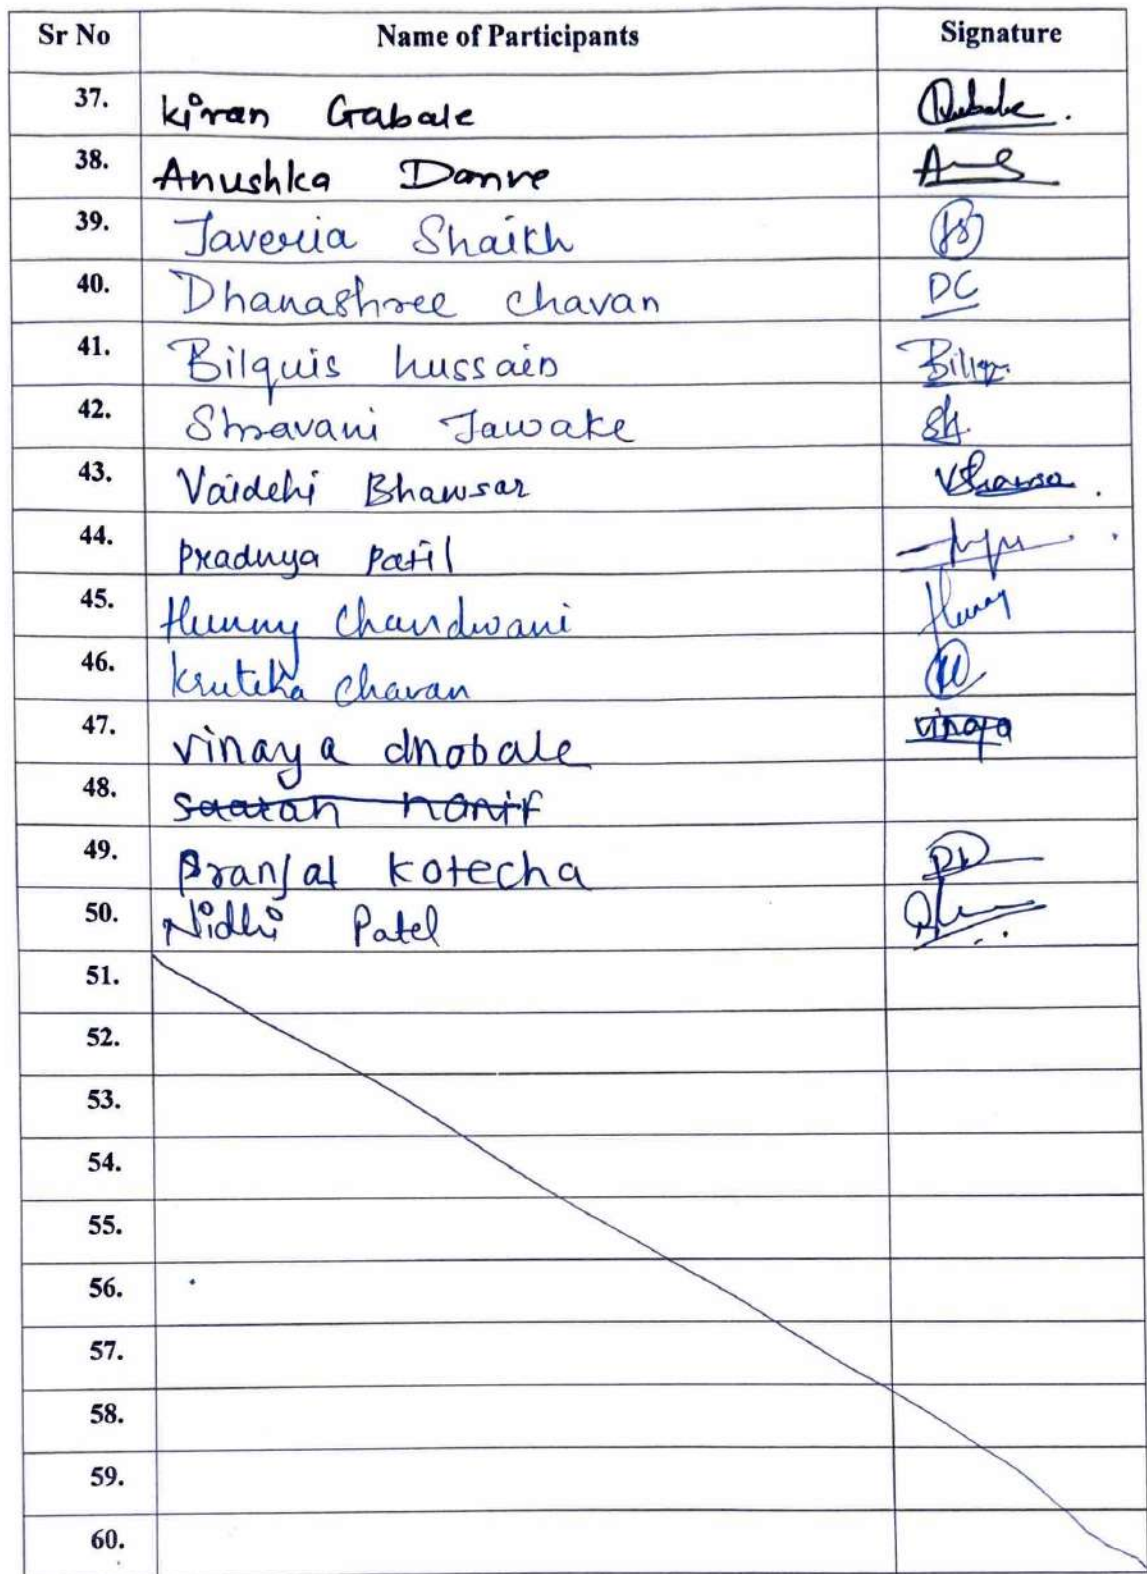 Sr No Name of Participants Signature
37. Kiran Gabale
38. Anushka Danve
39. Javeria Shaikh
40. Dhanashree Chavan DC
41. Bilquis hussain
42. Shravani Jawake
43. Vaidehi Bhawsar
44. Pradnya Patil
45. Hunny Chandwani Hunny
46. Krutika Chavan
47. vinaya dhobale vinaya
48. saarah hanif
49. Pranjal kotecha
50. Nidhi Patel
51.
52.
53.
54.
55.
56.
57.
58.
59.
60.